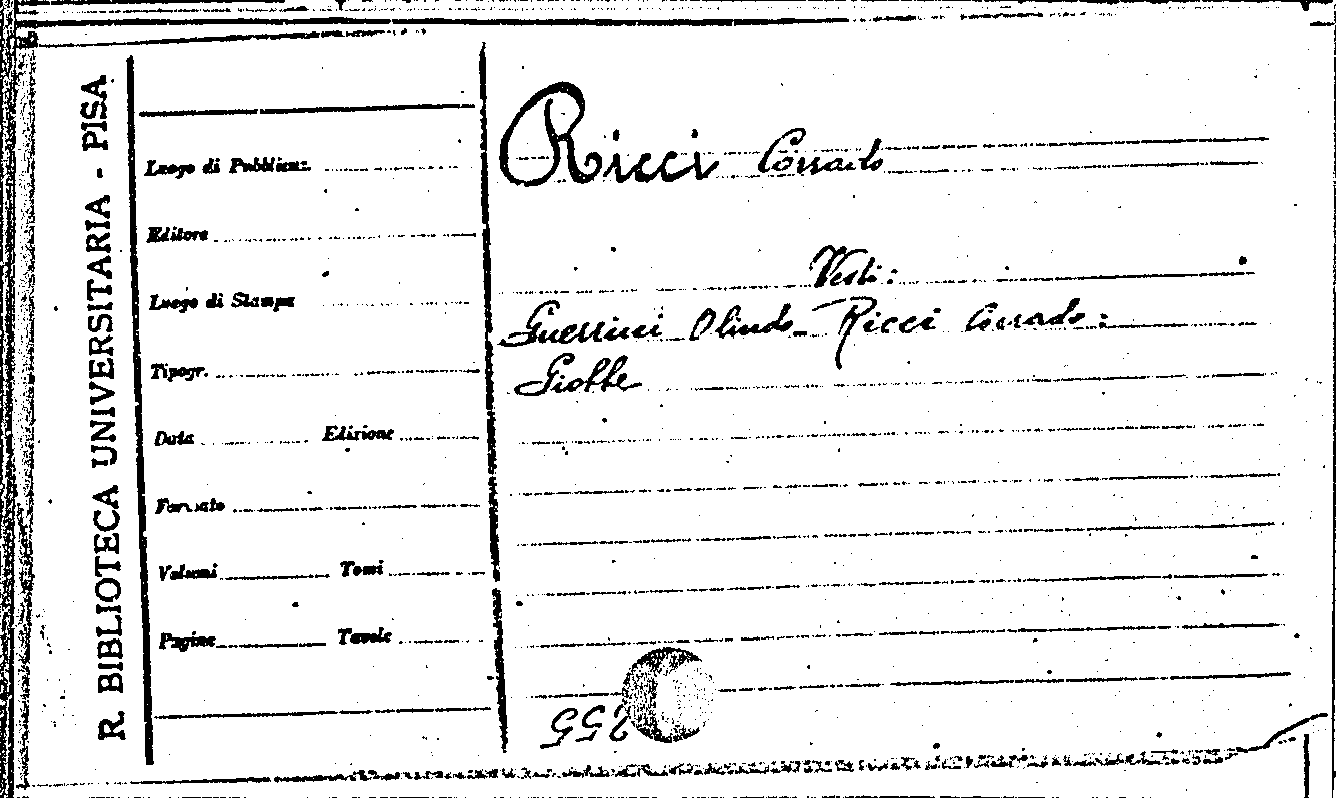 R. BIBLIOTECA UNIVERSITARIA - PISA
Luogo di Pubblicaz.
Editore
Luogo di Stampa
Tipogr.
Data Edizione
Formato
Volumi Tomi
Pagine Tavole
Ricci Corrado
Vesti:
Guerrini Olindo - Ricci Corrado:
Giobbe